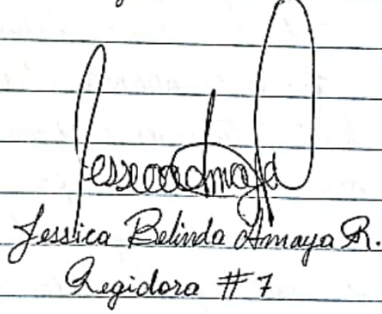 Jessica Amaya
Jessica Belinda Amaya R.
Regidora #7